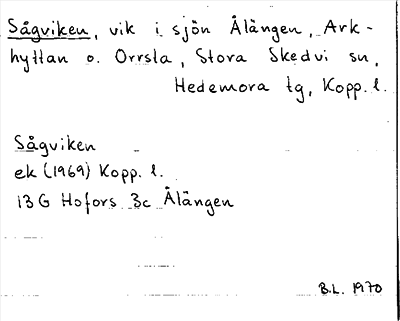 Sågviken, vik i sjön Ålängen, Ark-
hyttan o. Orrsla, Stora Skedvi sn,
Hedemora tg, Kopp. l.
Sågviken
ek (1969) Kopp. l.
13G Hofors 3c Ålängen
B.L. 1970